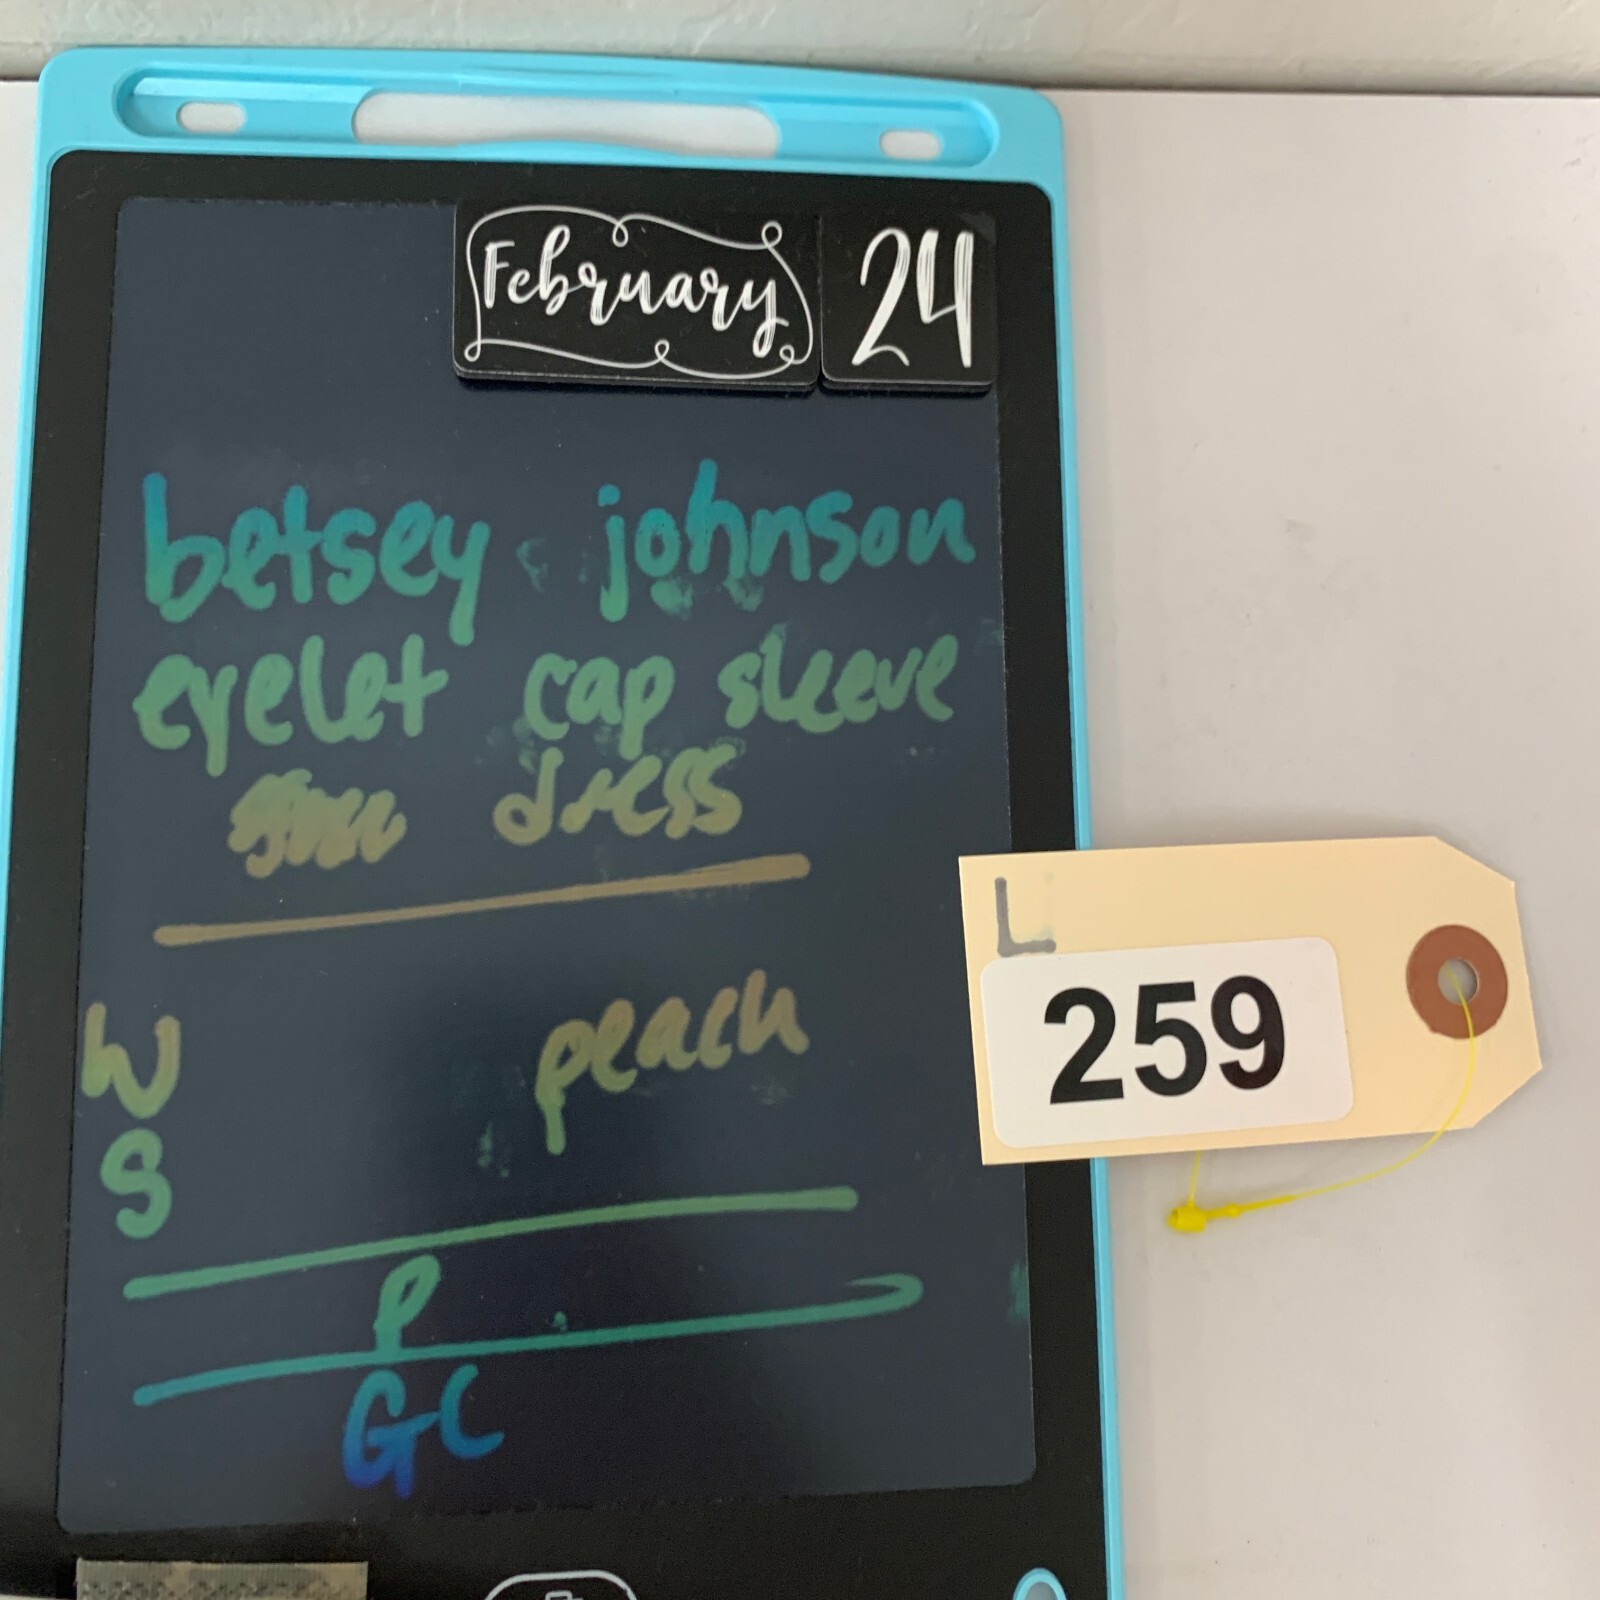 February 24
betsey johnson
eyelet cap sleeve
dress
W peach
S
P
GC
L
259